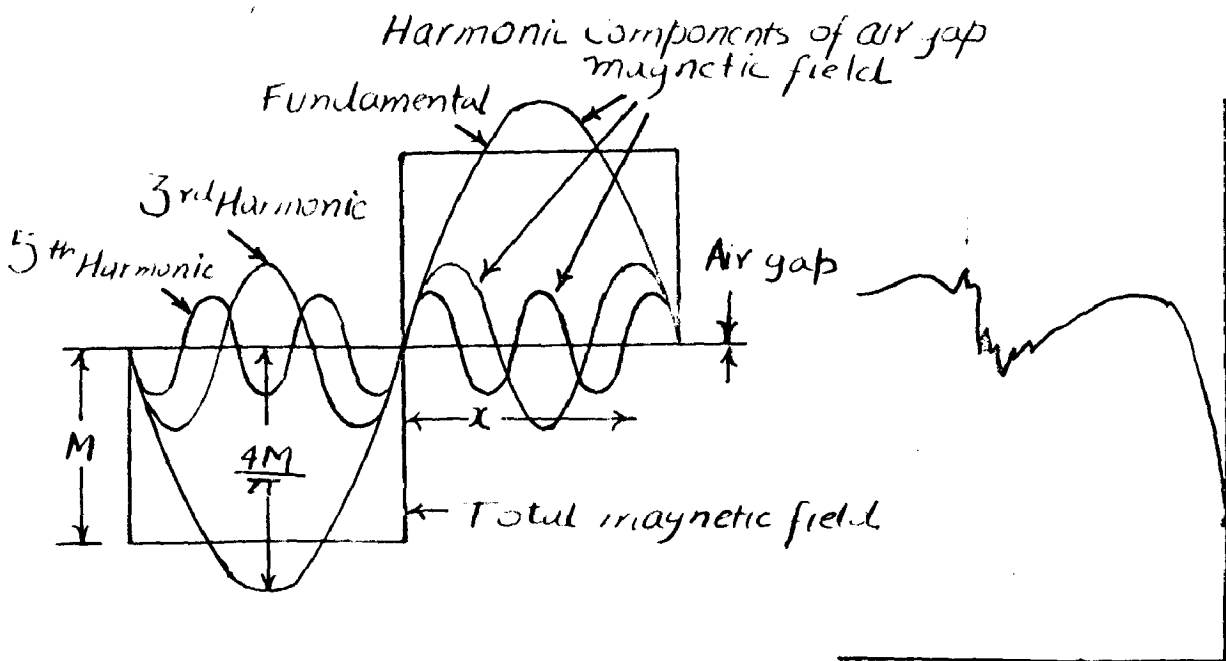 Harmonic components of air gap
magnetic field
Fundamental
3rd Harmonic
5th Harmonic
Air gap
M
4M
π
x
Total magnetic field